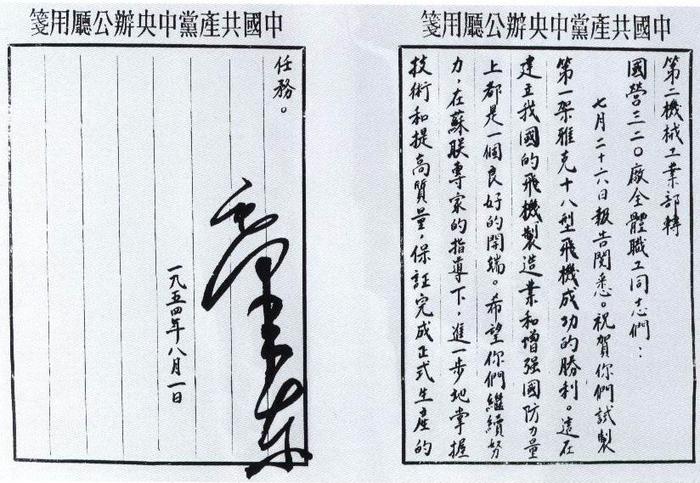 中國共產黨中央辦公廳用箋
第二機械工業部轉
國營三二〇廠全體職工同志們：
七月二十六日報告閱悉。祝賀你們試製
第一架雅克十八型飛機成功的勝利。這在
建立我國的飛機製造業和增强國防力量
上都是一個良好的開端。希望你們繼續努
力，在蘇联專家的指導下，進一步地掌握
技術和提高質量，保証完成正式生產的
中國共產黨中央辦公廳用箋
任務。
毛澤東
一九五四年八月一日